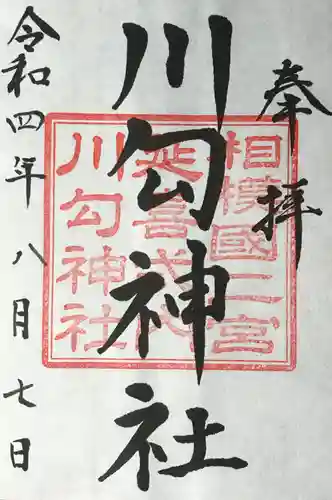 奉拝
川勾神社
相模國二宮
延喜式内
川勾神社
令和四年八月七日